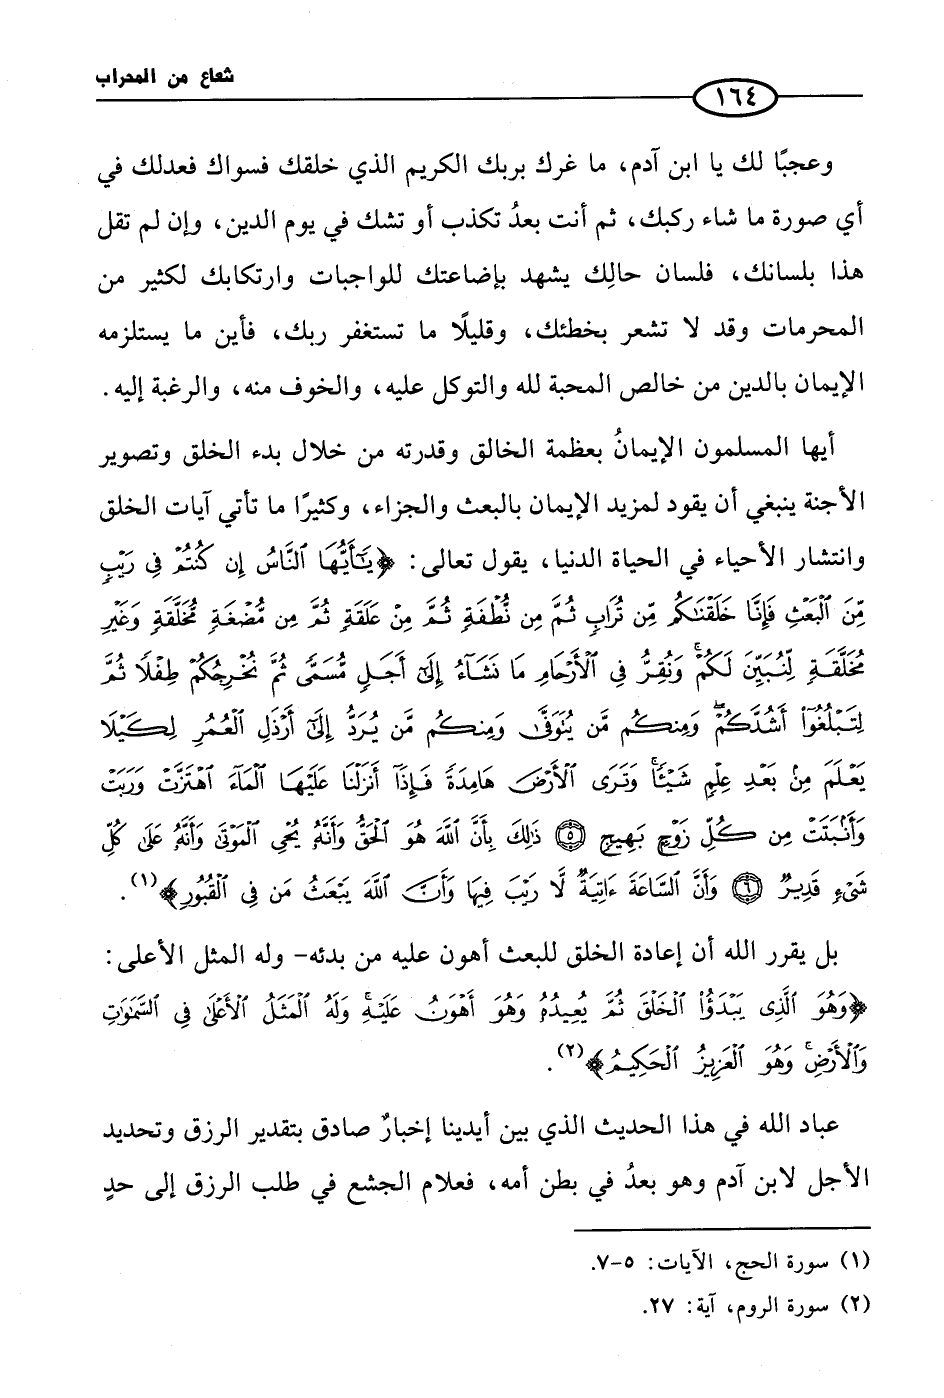 شعاع من المحراب
١٦٤
وعجبًا لك يا ابن آدم، ما غرك بربك الكريم الذي خلقك فسواك فعدلك في
أي صورة ما شاء ركبك، ثم أنت بعدُ تكذب أو تشك في يوم الدين، وإن لم تقل
هذا بلسانك، فلسان حالِك يشهد بإضاعتك للواجبات وارتكابك لكثير من
المحرمات وقد لا تشعر بخطئك، وقليلًا ما تستغفر ربك، فأين ما يستلزمه
الإيمان بالدين من خالص المحبة لله والتوكل عليه، والخوف منه، والرغبة إليه.
أيها المسلمون الإيمانُ بعظمة الخالق وقدرته من خلال بدء الخلق وتصوير
الأجنة ينبغي أن يقود لمزيد الإيمان بالبعث والجزاء، وكثيرًا ما تأتي آيات الخلق
وانتشار الأحياء في الحياة الدنيا، يقول تعالى: ﴿يَٰٓأَيُّهَا ٱلنَّاسُ إِن كُنتُمۡ فِي رَيۡبٖ
مِّنَ ٱلۡبَعۡثِ فَإِنَّا خَلَقۡنَٰكُم مِّن تُرَابٖ ثُمَّ مِن نُّطۡفَةٖ ثُمَّ مِنۡ عَلَقَةٖ ثُمَّ مِن مُّضۡغَةٖ مُّخَلَّقَةٖ وَغَيۡرِ
مُخَلَّقَةٖ لِّنُبَيِّنَ لَكُمۡۚ وَنُقِرُّ فِي ٱلۡأَرۡحَامِ مَا نَشَآءُ إِلَىٰٓ أَجَلٖ مُّسَمّٗى ثُمَّ نُخۡرِجُكُمۡ طِفۡلٗا ثُمَّ
لِتَبۡلُغُوٓاْ أَشُدَّكُمۡۖ وَمِنكُم مَّن يُتَوَفَّىٰ وَمِنكُم مَّن يُرَدُّ إِلَىٰٓ أَرۡذَلِ ٱلۡعُمُرِ لِكَيۡلَا
يَعۡلَمَ مِنۢ بَعۡدِ عِلۡمٖ شَيۡـٔٗاۚ وَتَرَى ٱلۡأَرۡضَ هَامِدَةٗ فَإِذَآ أَنزَلۡنَا عَلَيۡهَا ٱلۡمَآءَ ٱهۡتَزَّتۡ وَرَبَتۡ
وَأَنۢبَتَتۡ مِن كُلِّ زَوۡجِۭ بَهِيجٖ ٥ ذَٰلِكَ بِأَنَّ ٱللَّهَ هُوَ ٱلۡحَقُّ وَأَنَّهُۥ يُحۡيِ ٱلۡمَوۡتَىٰ وَأَنَّهُۥ عَلَىٰ كُلِّ
شَيۡءٖ قَدِيرٞ ٦ وَأَنَّ ٱلسَّاعَةَ ءَاتِيَةٞ لَّا رَيۡبَ فِيهَا وَأَنَّ ٱللَّهَ يَبۡعَثُ مَن فِي ٱلۡقُبُورِ﴾(١).
بل يقرر الله أن إعادة الخلق للبعث أهون عليه من بدئه- وله المثل الأعلى:
﴿وَهُوَ ٱلَّذِي يَبۡدَؤُاْ ٱلۡخَلۡقَ ثُمَّ يُعِيدُهُۥ وَهُوَ أَهۡوَنُ عَلَيۡهِۚ وَلَهُ ٱلۡمَثَلُ ٱلۡأَعۡلَىٰ فِي ٱلسَّمَٰوَٰتِ
وَٱلۡأَرۡضِۚ وَهُوَ ٱلۡعَزِيزُ ٱلۡحَكِيمُ﴾(٢).
عباد الله في هذا الحديث الذي بين أيدينا إخبارٌ صادق بتقدير الرزق وتحديد
الأجل لابن آدم وهو بعدُ في بطن أمه، فعلام الجشع في طلب الرزق إلى حدٍ
(١) سورة الحج، الآيات: ٥-٧.
(٢) سورة الروم، آية: ٢٧.